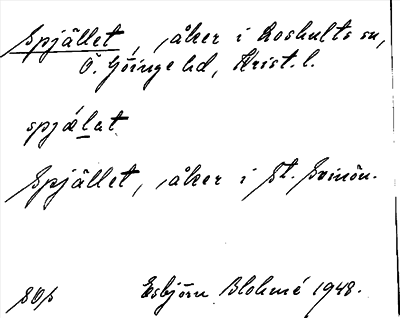 Spjället, åker i Loshults sn,
Ö. Göinge hd, Krist. l.
spjælat
Spjället, åker i St. Svinön.
Esbjörn Blohmé 1948.